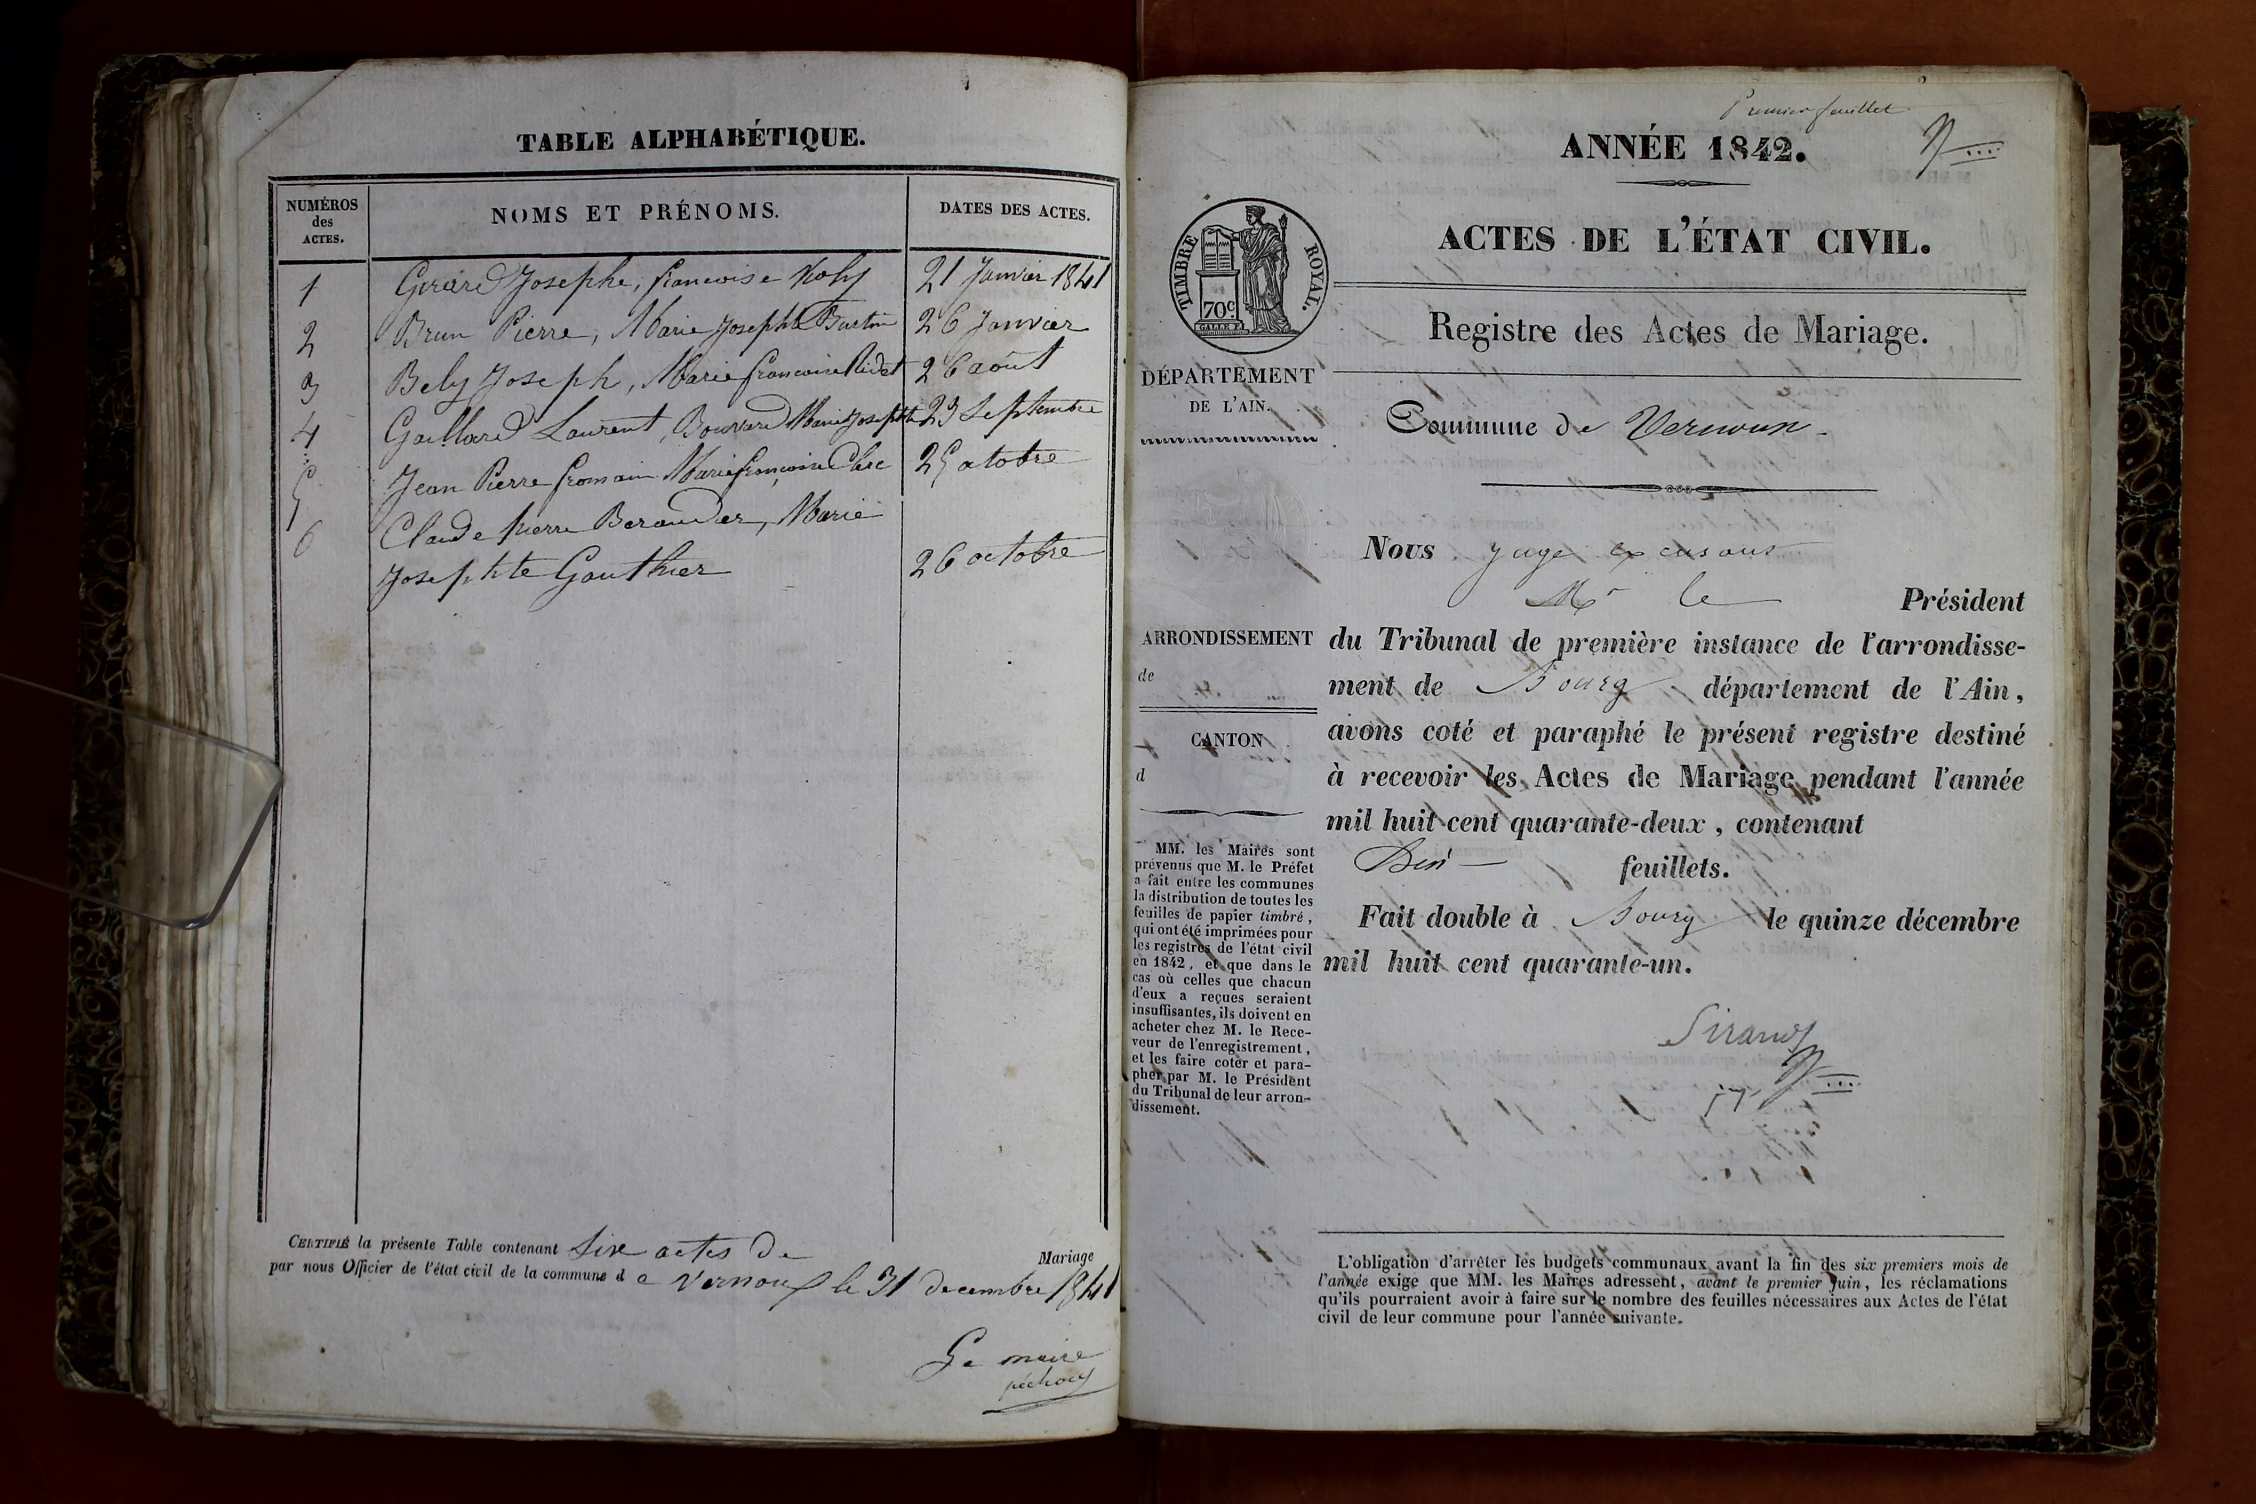 TABLE ALPHABÉTIQUE.
NUMÉROS
des
ACTES.
NOMS ET PRÉNOMS.
DATES DES ACTES.
1 Girard Josephe, francoise 21 Janvier 1841
2 Brun Pierre, Marie Josephte 26 Janvier
3 Bely Joseph, Marie francoise 26 aout
4 Gaillard Laurent, Bouvard Marie Josephte 23 Septembre
5 Jean Pierre fromain Marie françoise Clerc 25 otobre
6 Claude pierre Beraudier, Marie
Josephte Gauthier 26 octobre
CERTIFIÉ la présente Table contenant Six actes de Mariage
par nous Officier de l'état civil de la commune d e Vernoux le 31 decembre 1841
Le maire
Premier feuillet
ANNÉE 1842.
ACTES DE L'ÉTAT CIVIL.
Registre des Actes de Mariage.
TIMBRE ROYAL.
70c
DÉPARTEMENT
DE L'AIN.
Commune de Vernoux
Nous Juge excusant
Mr le Président
ARRONDISSEMENT
de
CANTON
d
du Tribunal de première instance de l'arrondisse-
ment de Bourg département de l'Ain,
avons coté et paraphé le présent registre destiné
à recevoir les Actes de Mariage pendant l'année
mil huit cent quarante-deux, contenant
feuillets.
Fait double à Bourg le quinze décembre
mil huit cent quarante-un.
Sirand
MM. les Maires sont
prévenus que M. le Préfet
a fait entre les communes
la distribution de toutes les
feuilles de papier timbré,
qui ont été imprimées pour
les registres de l'état civil
en 1842, et que dans le
cas où celles que chacun
d'eux a reçues seraient
insuffisantes, ils doivent en
acheter chez M. le Rece-
veur de l'enregistrement,
et les faire coter et para-
pher par M. le Président
du Tribunal de leur arron-
dissement.
L'obligation d'arrêter les budgets communaux avant la fin des six premiers mois de
l'année exige que MM. les Maires adressent, avant le premier juin, les réclamations
qu'ils pourraient avoir à faire sur le nombre des feuilles nécessaires aux Actes de l'état
civil de leur commune pour l'année suivante.